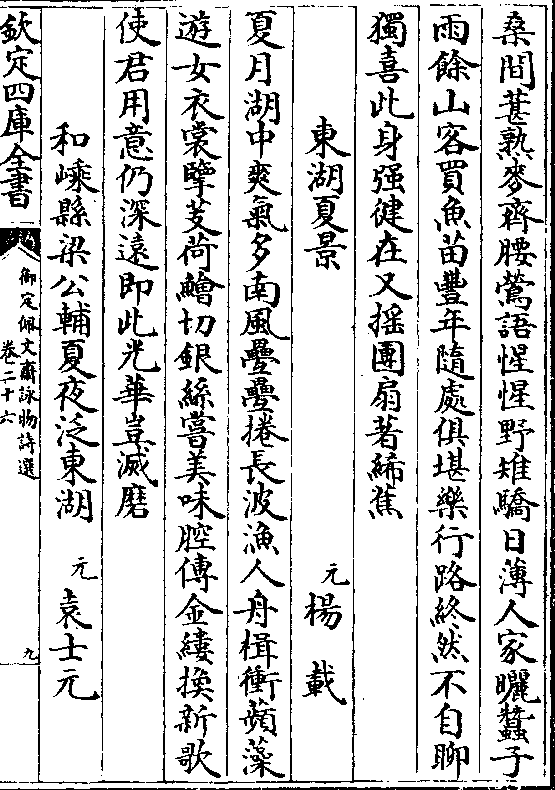 桑間葚熟麥齊腰鶯語惺惺野雉驕日薄人家曬蠶子
雨餘山客買魚苗豐年隨處俱堪樂行路終然不自聊
獨喜此身强健在又摇團扇著絺蕉
東湖夏景 元 楊載
夏月湖中爽氣多南風疊疊捲長波漁人舟楫衝蘋藻
遊女衣裳罥芰荷鱠切銀絲嘗美味腔傳金縷換新歌
使君用意仍深遠即此光華豈滅磨
和嵊縣梁公輔夏夜泛東湖 元 袁士元
欽定四庫全書 御定佩文齋詠物詩選 卷二十六 九